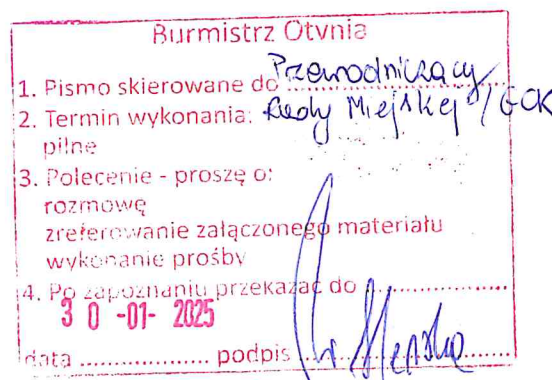 Burmistrz Otynia
1. Pismo skierowane do Przewodniczący
2. Termin wykonania: Rady Miejskiej / GCK
pilne
3. Polecenie - proszę o:
rozmowę
zreferowanie załączonego materiału
wykonanie prośby
4. Po zapoznaniu przekazać do ....................
30 -01- 2025
data ................. podpis ....................